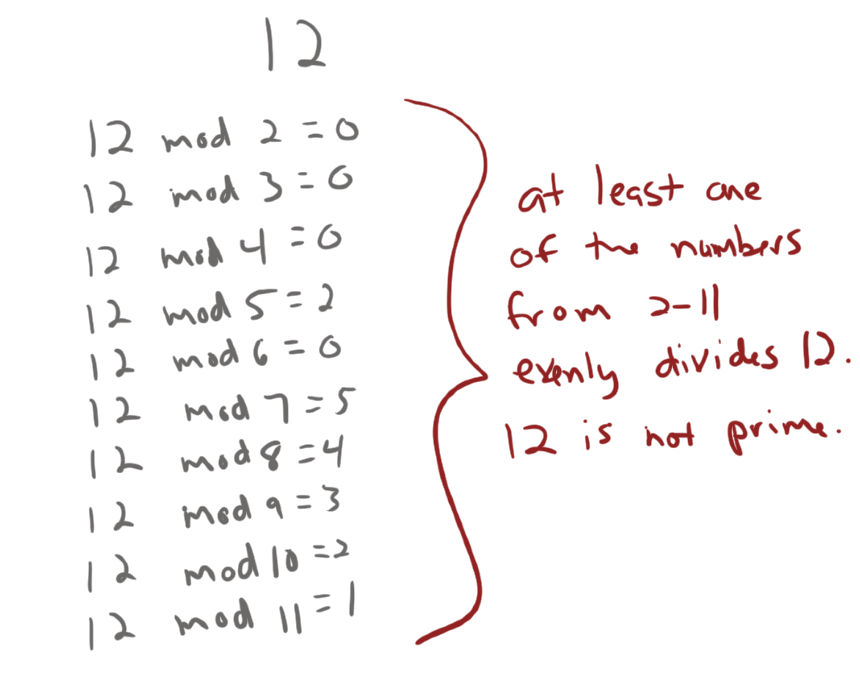 12
12 mod 2 = 0
12 mod 3 = 0
12 mod 4 = 0
12 mod 5 = 2
12 mod 6 = 0
12 mod 7 = 5
12 mod 8 = 4
12 mod 9 = 3
12 mod 10 = 2
12 mod 11 = 1
at least one
of the numbers
from 2-11
evenly divides 12.
12 is not prime.